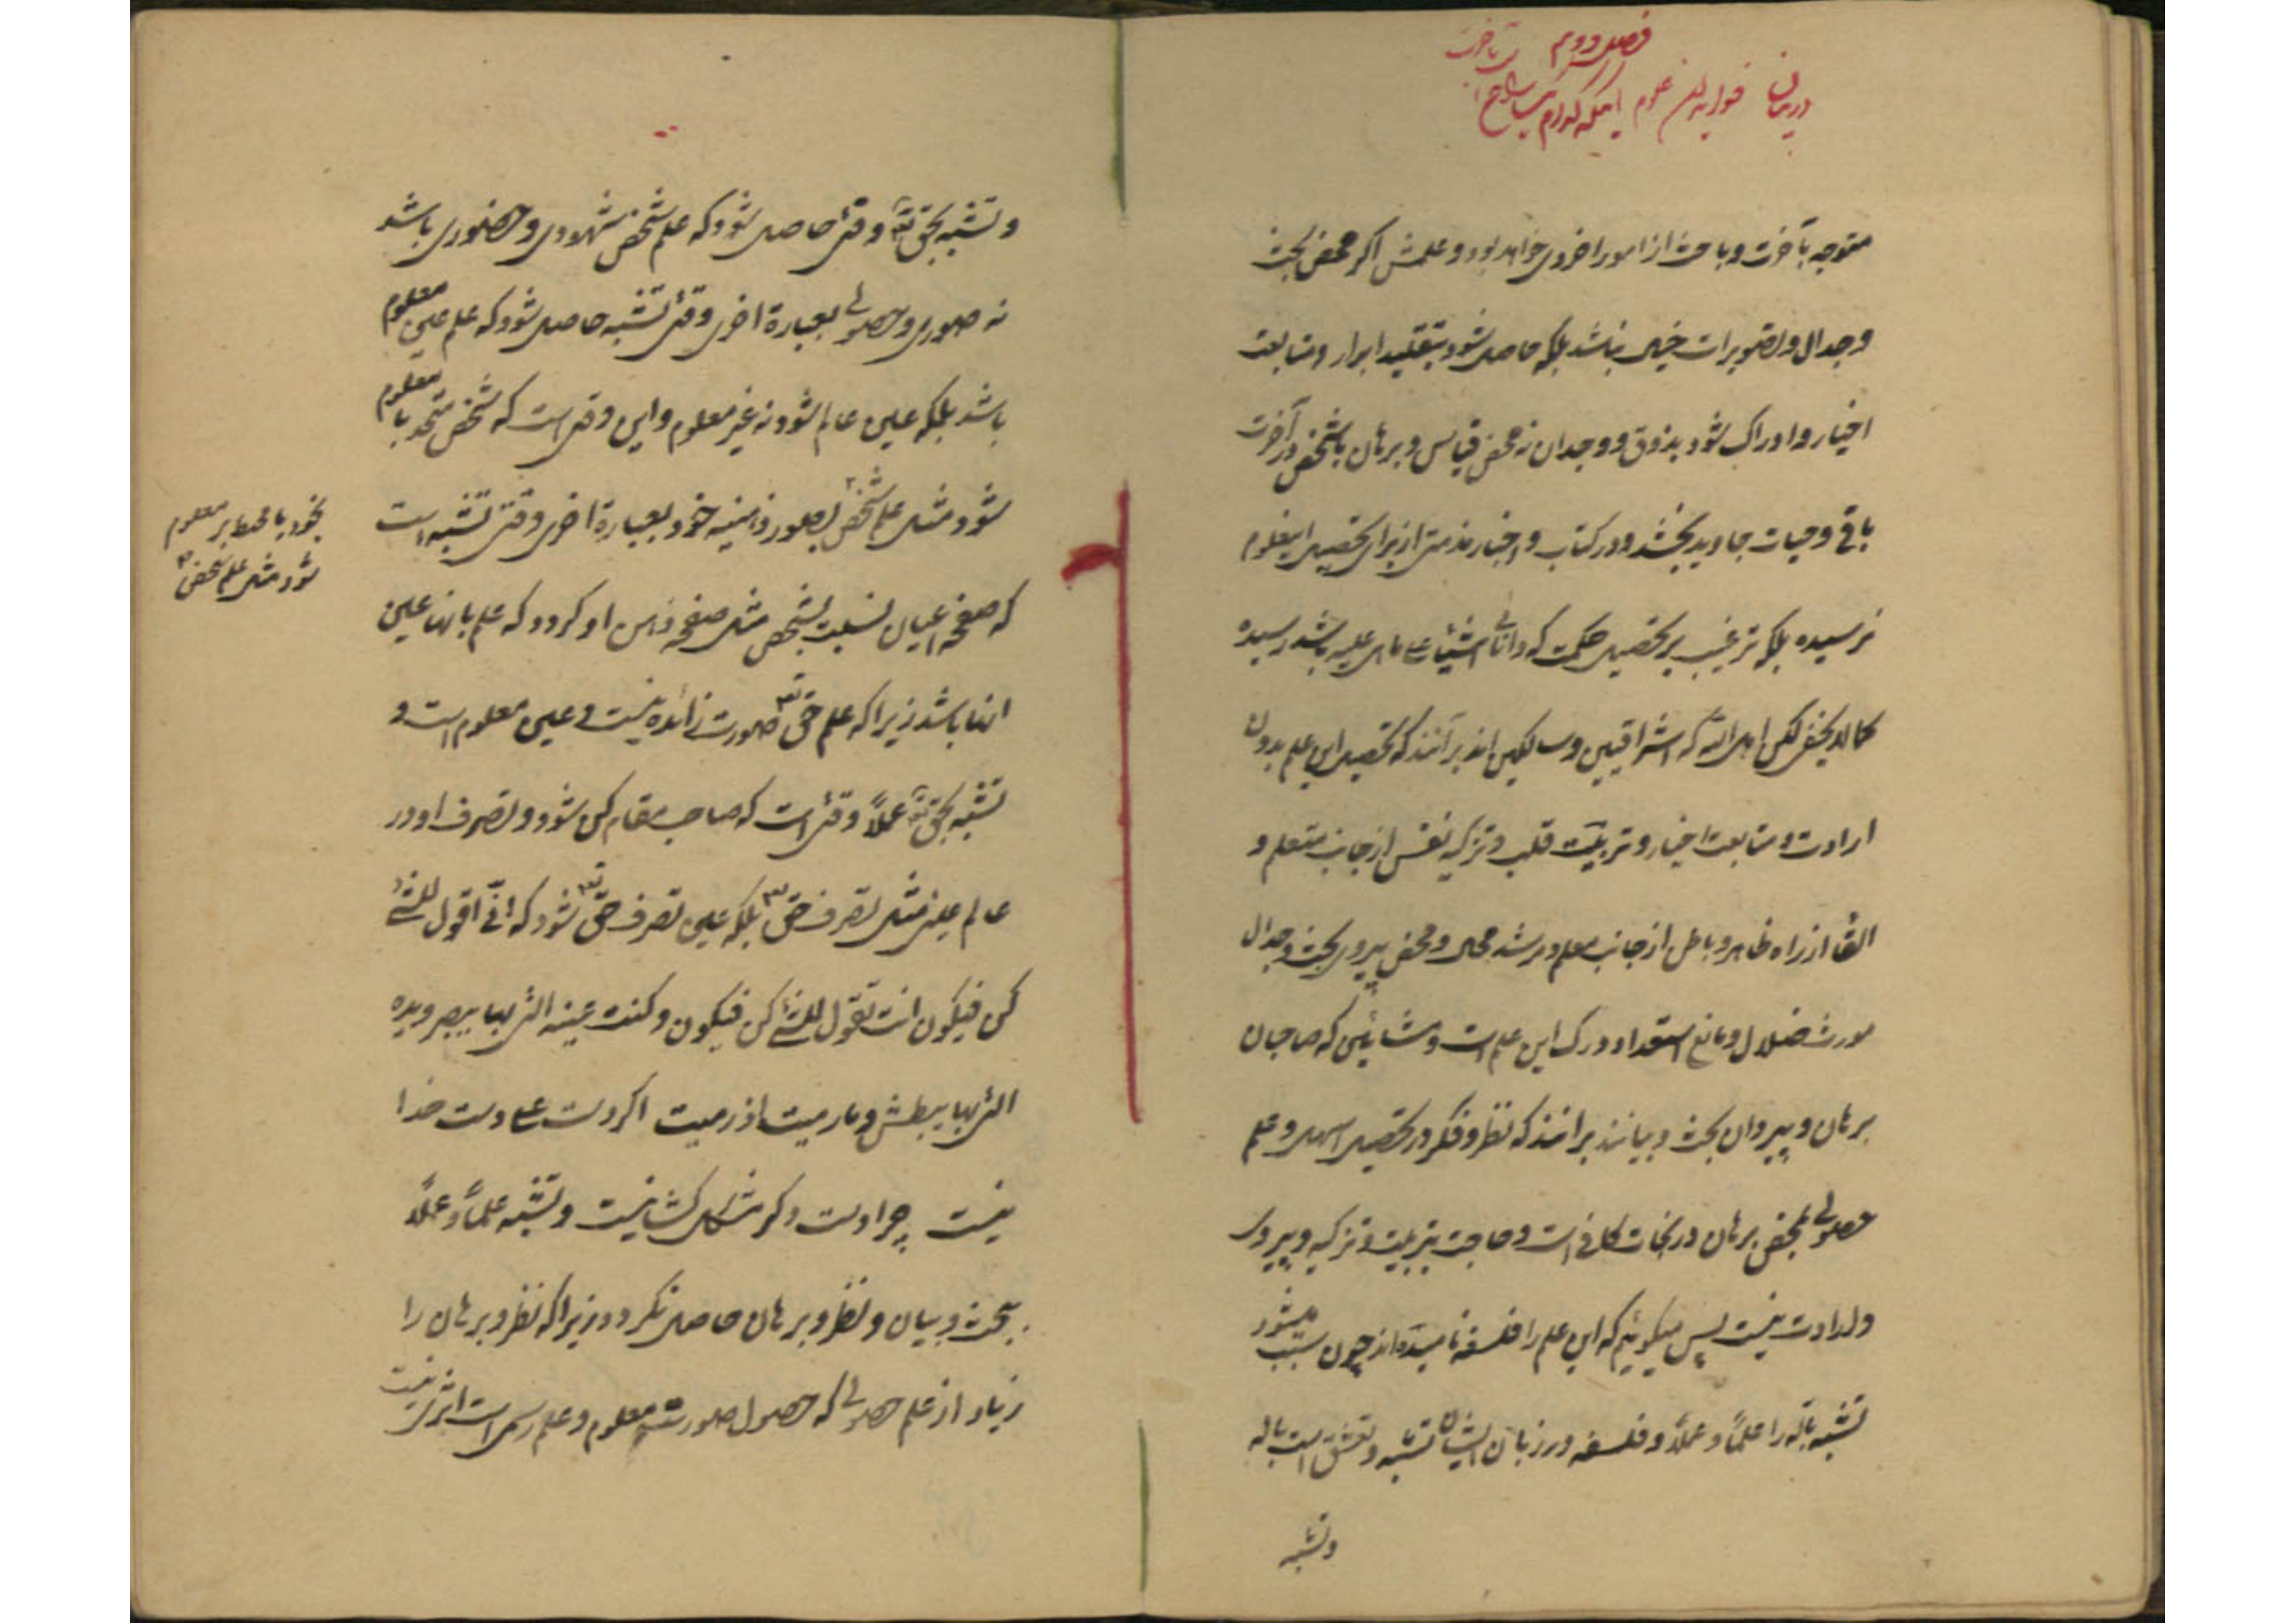 فصل دوم
در بیان علوم اینکه کدام
متوجه بآخرت و باحث از امور اخروی خواهد بود و علمش اگر محض بحث
و جدال و تصویرات خیالی نباشد بلکه حاصل شود بتقلید ابرار و متابعت
اخیار و ادراک شود بذوق و وجدان نه محض قیاس و برهان باشخص در آخرت
باقی و حیات جاوید بخشد و در کتاب و اخبار مذمتی از برای تحصیل اینعلوم
نرسیده بلکه ترغیب بر تحصیل حکمت که دانائی اشیاء علی ماهی علیه باشد رسیده
کمالایخفی لکن اهل الله که اشراقیین و سالکین اند برآنند که تحصیل این علم بدون
ارادت و متابعت اخیار و تربیت قلب و تزکیه نفس از جانب متعلم و
القا از راه ظاهر و باطن از جانب معلم و مرشد محال و محض پیروی بحث و جدال
مورث ضلال و مانع استعداد درک این علم است و مشائین که صاحبان
برهان و پیروان بحث و بیانند برانند که نظر و فکر در تحصیل و علم
حصولی بمحض برهان در نجات کافی است و حاجت بتربیت و تزکیه و پیروی
و ارادت نیست پس میگوئیم که این علم را فلسفه نامیده‌اند چون سبب میشود
تشبه باله را علماً و عملاً و فلسفه در زبان ایشان تشبه و تعشق است باله
وتشبه
و تشبه بحق تعالی وقتی حاصل شود که علم شخص شهودی و حضوری باشد
نه صوری و حصولی بعبارة اخری وقتی تشبه حاصل شود که علم عین معلوم
باشد بلکه عین عالم شود نه غیر معلوم و این وقتی است که شخص متحد با معلوم
شود مثل علم شخص بصور ذهنیه خود بعبارة اخری وقتی تشبه است
بخود یا محیط بر معلوم
شود مثل علم شخص
که صفحه اعیان نسبت بشخص مثل صفحه ذهن او گردد که علم بانها عین
انها باشد زیرا که علم حق تع صورت زائده نیست و عین معلوم است و
تشبه بحق تعالی عملاً وقتی است که صاحب مقام کن شود و تصرف او در
عالم عینی مثل تصرف حق تع بلکه عین تصرف حق تع شود که انی اقول للشئ
کن فیکون انت تقول للشئ کن فیکون و کنت عینه التی بها یبصر و یده
التی بها یبطش و مارمیت اذ رمیت اگر دست علی دست خدا
نیست چرا دست دگر مشکل گشا نیست و تشبه علماً و عملاً
ببحث و بیان و نظر و برهان حاصل نگردد زیرا که نظر و برهان را
زیاد از علم حصولی که حصول صورت معلوم و علم رسمی است اثری نیست